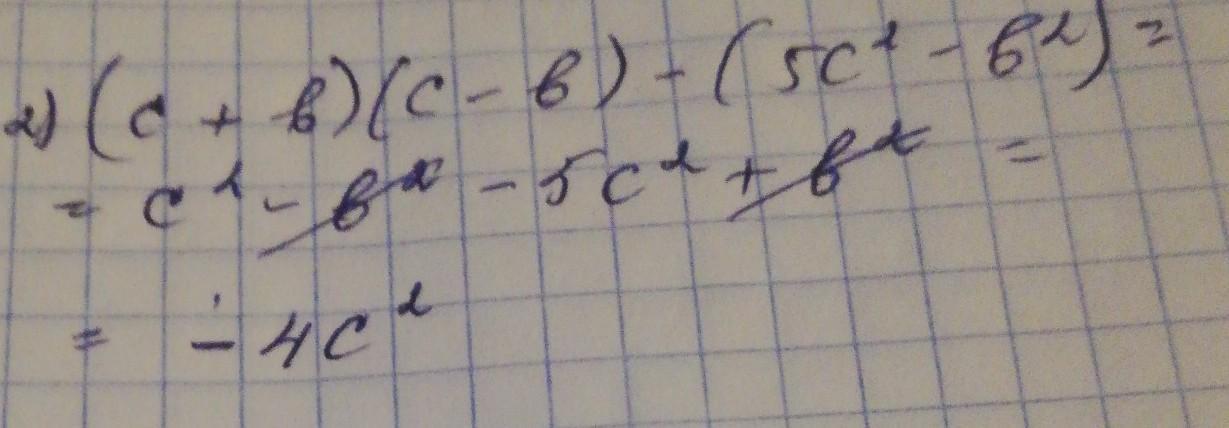 2) (c + b)(c - b) - (5c² - b²) =
= c² - b² - 5c² + b² =
= - 4c²